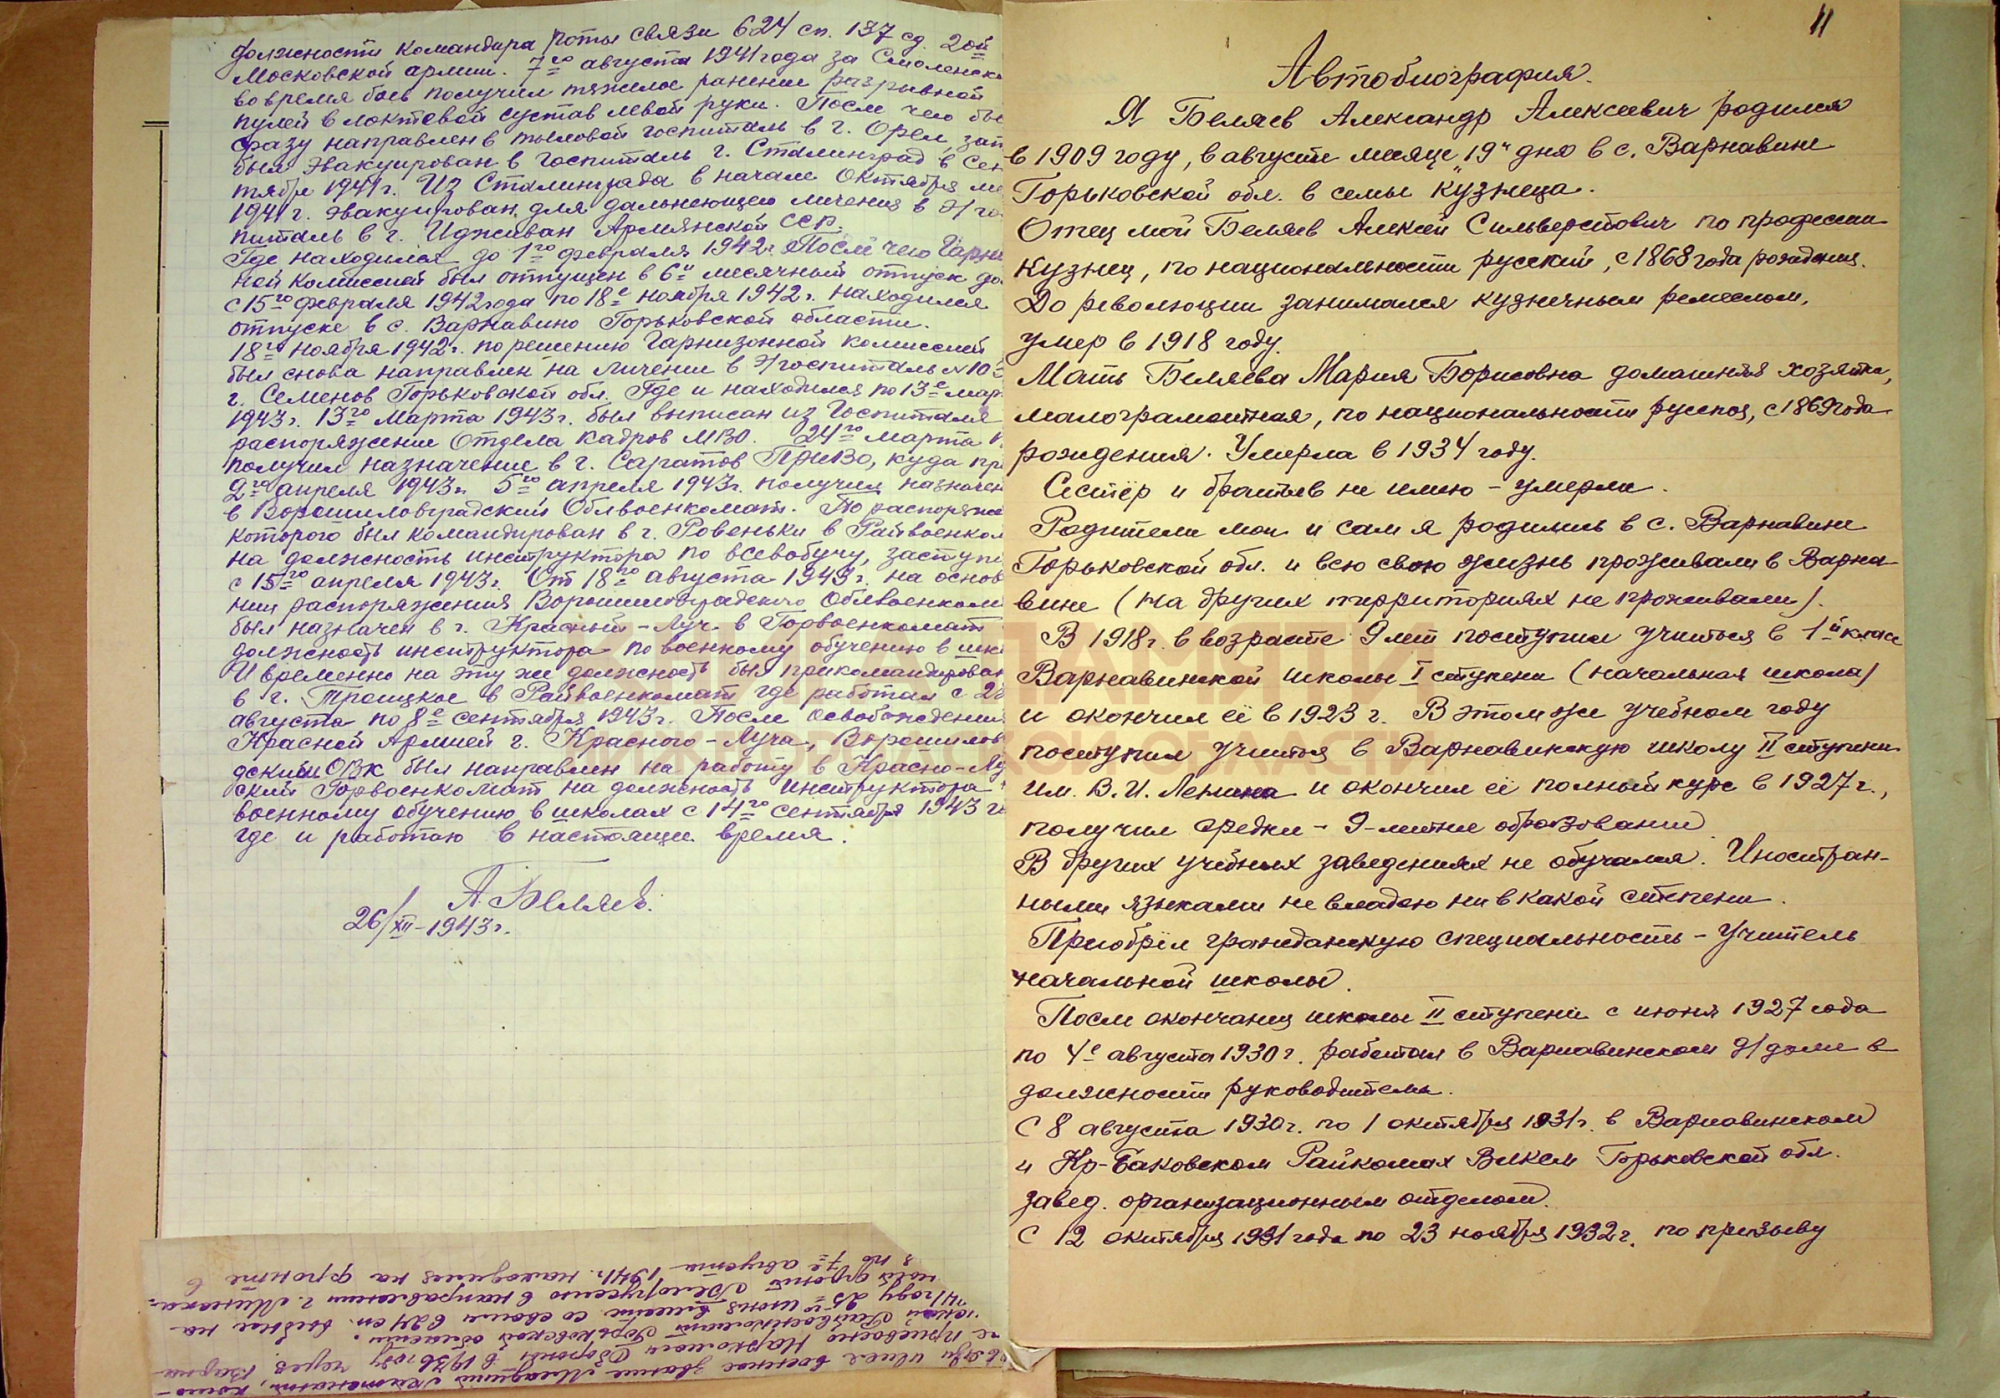 должности командира роты связи 624 сп. 137 сд. 20й
Московской армии. 7го августа 1941 года за Смоленск
во время боев получил тяжелое ранение разрывной
пулей в локтевой сустав левой руки. После чего бы
сразу направлен в тыловой госпиталь в г. Орел, зат
был эвакуирован в госпиталь г. Сталинград в сен
тябре 1941 г. Из Сталинграда в начале Октября ме
1941 г. эвакуирован для дальнеющего личения в э/го
питаль в г. Иджеван Армянской ССР.
Где находился до 1го февраля 1942 г. После чего Гарни
ной комиссией был отпущен в 6и месячный отпуск до
с 15го февраля 1942 года по 18е ноября 1942 г. находился
отпуске в с. Варнавино Горьковской области.
18го ноября 1942 г. по решению Гарнизонной комиссией
был снова направлен на личение в э/госпиталь № 10
г. Семенов Горьковской обл. Где и находился по 13е мар
1943 г. 13го Марта 1943 г. был выписан из Госпиталя
распоряжение Отдела кадров МВО. 24го марта
получил назначение в г. Саратов ПриВО, куда пр
2го апреля 1943 г. 5го апреля 1943 г. получил назначен
в Ворошиловградский Облвоенкомат. По распоряже
которого был командирован в г. Ровеньки в Райвоенком
на должность инструктора по всевобучу, заступи
с 15го апреля 1943 г. От 18го августа 1943 г. на основ
нии распоряжения Ворошиловградского Облвоенком
был назначен в г. Красный-Луч в Горвоенкомат
должность инструктора по военному обучению в шко
И временно на эту же должность был прикомандирован
в г. Троицкое в Райвоенкомат где работал с 2
августа по 8е сентября 1943 г. После освобождения
Красной Армией г. Красного-Луча, Ворошилов
дский ОВК был направлен на работу в Красно-Лу
ский Горвоенкомат на должность инструктора
военному обучению в школах с 14го сентября 1943 г
где и работаю в настоящее время.
А. Беляев.
26/XII-1943 г.
военное звание Младший Лейтенант,
присвоено Наркомом Обороны в 1936 году через Варна
Райвоенкомат Горьковской области.
41 году 25го июня вместе со своим 624 сп. выбыл на
фронт Белоруссию в направлении г. Минска.
по 7е августа 1941 г. находился на фронте в
11
Автобиография.
Я Беляев Александр Алексеевич родился
в 1909 году, в августе месяце, 19" дня в с. Варнавине
Горьковской обл. в семье кузнеца.
Отец мой Беляев Алексей Сильверстович по профессии
кузнец, по национальности русский, с 1868 года рождения.
До революции занимался кузнечным ремеслом,
умер в 1918 году.
Мать Беляева Мария Борисовна домашняя хозяйка,
малограмотная, по национальности русская, с 1869 года
рождения. Умерла в 1934 году.
Сестёр и братьев не имею - умерли.
Родители мои и сам я родились в с. Варнавине
Горьковской обл. и всю свою жизнь проживали в Варна
вине (на других территориях не проживали).
В 1918 г. в возрасте 9 лет поступил учиться в 1й класс
Варнавинской школы I ступени (начальная школа)
и окончил её в 1923 г. В этом же учебном году
поступил учиться в Варнавинскую школу II ступени
им. В. И. Ленина и окончил её полный курс в 1927 г.,
получил средне - 9-летнее образование
В других учебных заведениях не обучался. Иностран-
ными языками не владею ни в какой степени.
Приобрёл гражданскую специальность - Учитель
начальной школы.
После окончания школы II ступени с июня 1927 года
по 4е августа 1930 г. работал в Варнавинском д/доме в
должности руководителя.
С 8 августа 1930 г. по 1 октября 1931 г. в Варнавинском
и Кр-Баковском Райкомах ВЛКСМ Горьковской обл.
завед. организационным отделом.
С 12 октября 1931 года по 23 ноября 1932 г. по призыву